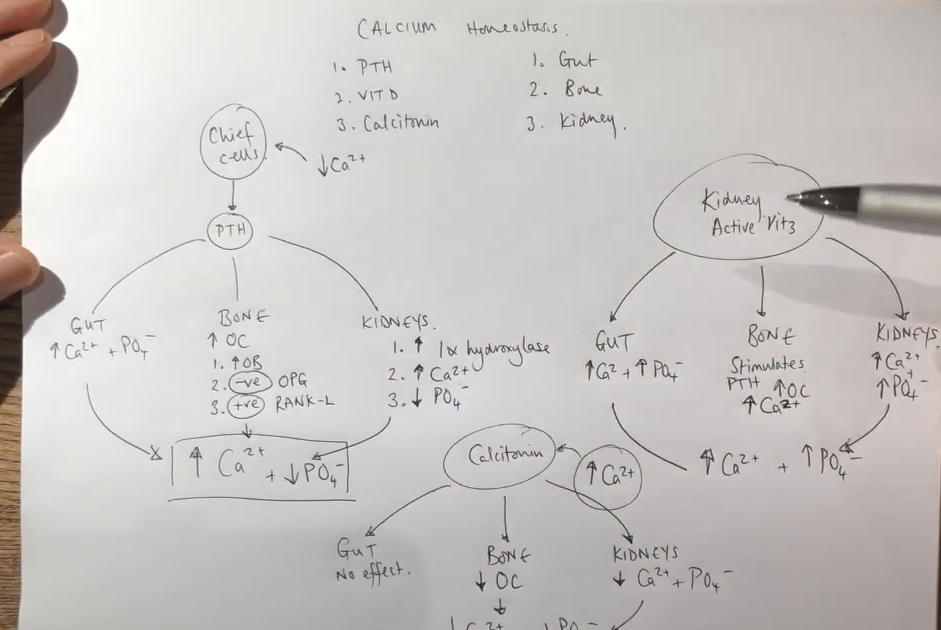 CALCIUM Homeostasis.
1. PTH
2. VIT D
3. Calcitonin
1. Gut
2. Bone
3. Kidney.
Chief
cells
↓Ca²⁺
PTH
GUT
↑Ca²⁺ + PO₄⁻
BONE
↑ OC
1. ↑OB
2. -ve OPG
3. +ve RANK-L
KIDNEYS.
1. ↑ 1α hydroxylase
2. ↑ Ca²⁺
3. ↓ PO₄⁻
↑ Ca²⁺ + ↓PO₄⁻
Kidney
Active Vit3
GUT
↑Ca² + ↑PO₄⁻
BONE
Stimulates
PTH ↑OC
↑Ca²⁺
KIDNEYS
↑Ca²⁺
↑PO₄⁻
↑Ca²⁺ + ↑PO₄⁻
Calcitonin
↑Ca²⁺
GUT
No effect.
BONE
↓ OC
KIDNEYS
↓ Ca²⁺ + PO₄⁻